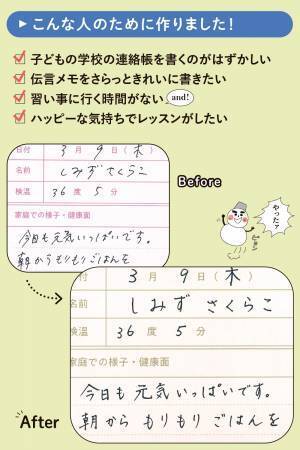 ▶こんな人のために作りました！
子どもの学校の連絡帳を書くのがはずかしい
伝言メモをさらっときれいに書きたい
習い事に行く時間がない and!
ハッピーな気持ちでレッスンがしたい
日付 3月 9日(木)
名前 しみず さくらこ
検温 36度 5分
家庭での様子・健康面
今日も元気いっぱいです。
朝からもりもりごはんを
Before
やったァ
付 3月 9日(木)
名前 しみず さくらこ
検温 36度 5分
家庭での様子・健康面
今日も元気いっぱいです。
朝から もりもり ごはんを
After